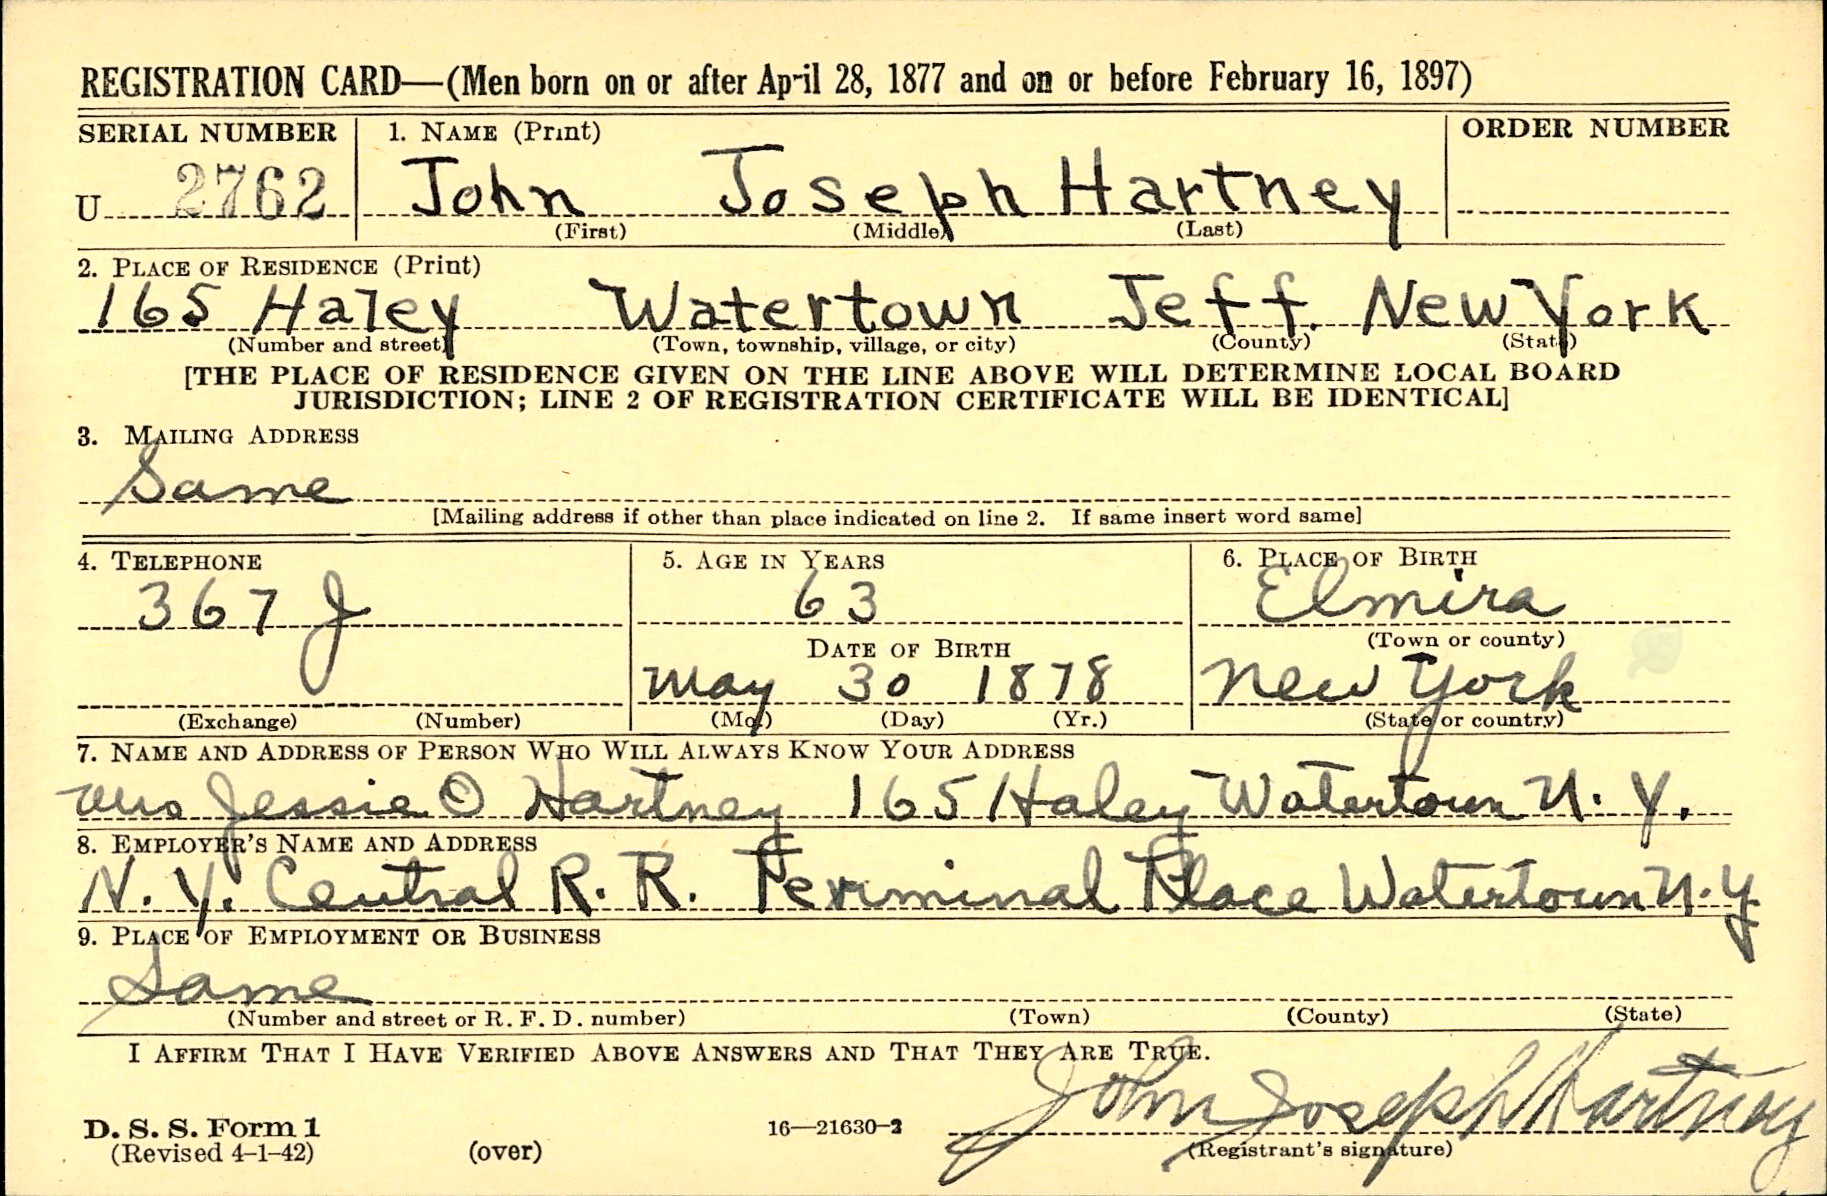 REGISTRATION CARD—(Men born on or after April 28, 1877 and on or before February 16, 1897)
SERIAL NUMBER 1. NAME (Print) ORDER NUMBER
U 2762 John Joseph Hartney
(First) (Middle) (Last)
2. PLACE OF RESIDENCE (Print)
165 Haley Watertown Jeff. New York
(Number and street) (Town, township, village, or city) (County) (State)
[THE PLACE OF RESIDENCE GIVEN ON THE LINE ABOVE WILL DETERMINE LOCAL BOARD
JURISDICTION; LINE 2 OF REGISTRATION CERTIFICATE WILL BE IDENTICAL]
3. MAILING ADDRESS
Same
[Mailing address if other than place indicated on line 2. If same insert word same]
4. TELEPHONE 5. AGE IN YEARS 6. PLACE OF BIRTH
367 J 63 Elmira
DATE OF BIRTH (Town or county)
May 30 1878 New York
(Exchange) (Number) (Mo.) (Day) (Yr.) (State or country)
7. NAME AND ADDRESS OF PERSON WHO WILL ALWAYS KNOW YOUR ADDRESS
Mrs Jessie O Hartney 165 Haley Watertown N. Y.
8. EMPLOYER'S NAME AND ADDRESS
N. Y. Central R. R. Terminal Place Watertown N. Y
9. PLACE OF EMPLOYMENT OR BUSINESS
Same
(Number and street or R. F. D. number) (Town) (County) (State)
I AFFIRM THAT I HAVE VERIFIED ABOVE ANSWERS AND THAT THEY ARE TRUE.
John Joseph Hartney
D. S. S. Form 1 16—21630-2
(Revised 4-1-42) (over) (Registrant's signature)